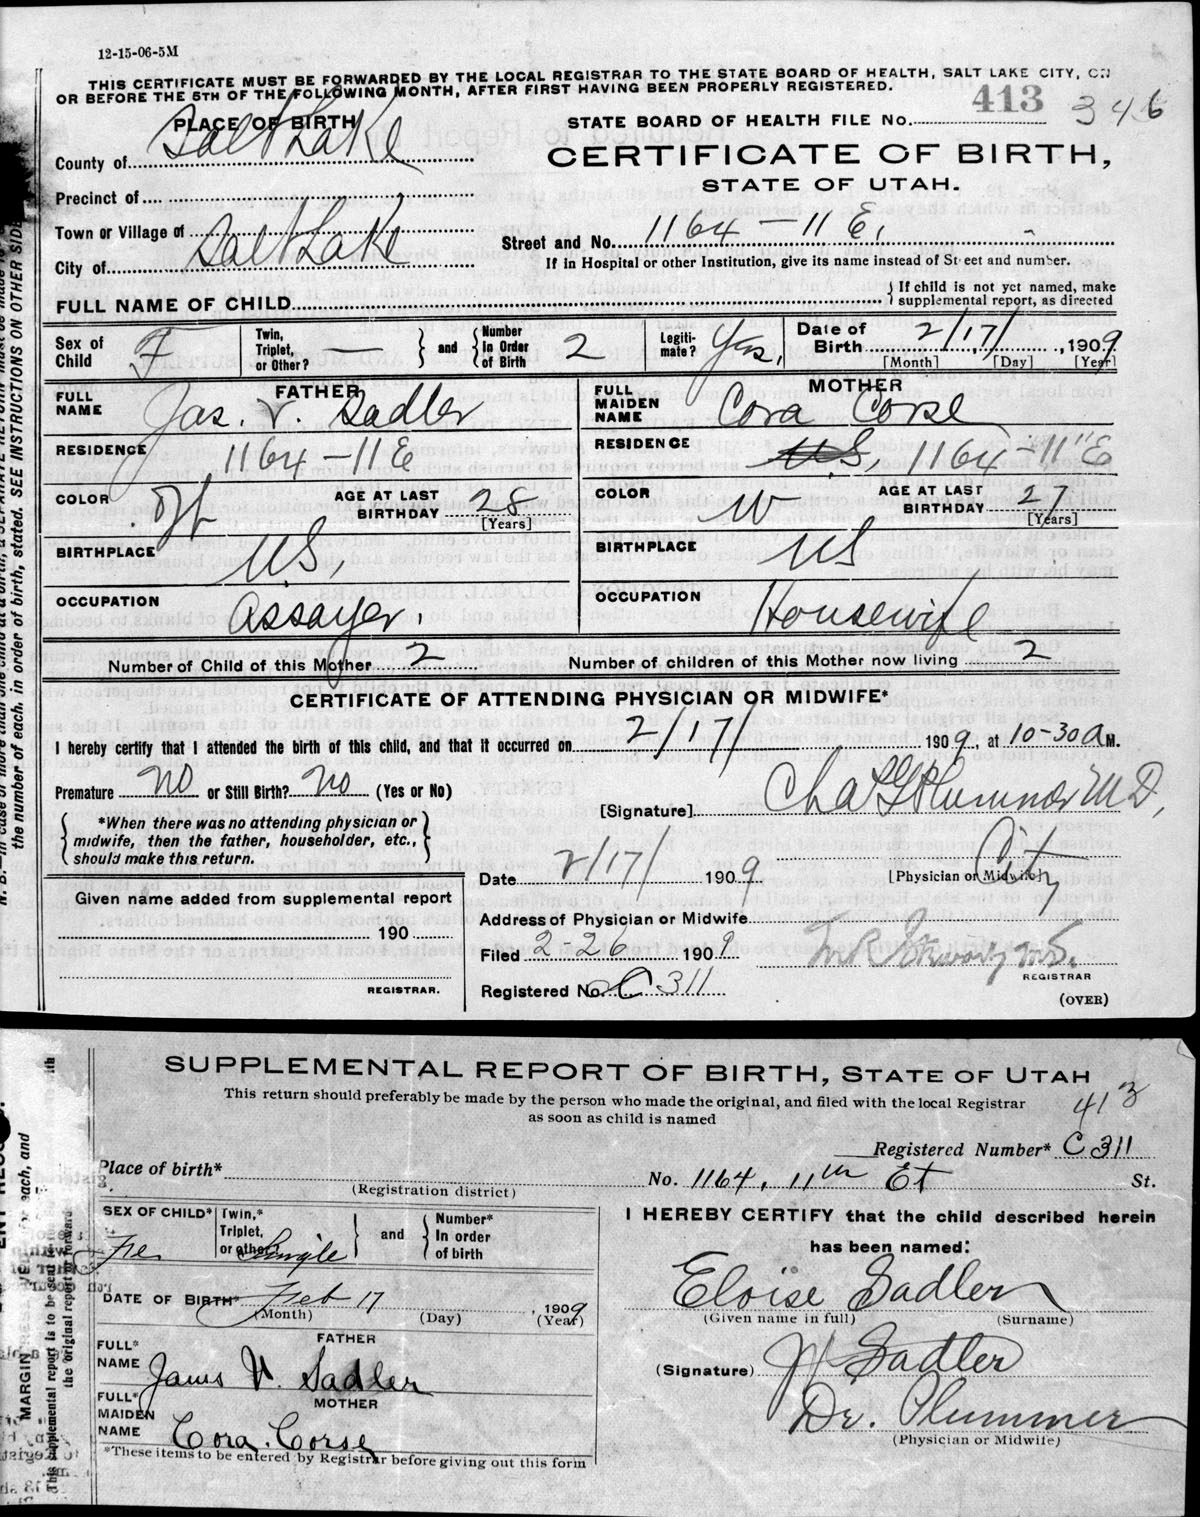 12-15-06-5M
THIS CERTIFICATE MUST BE FORWARDED BY THE LOCAL REGISTRAR TO THE STATE BOARD OF HEALTH, SALT LAKE CITY, ON
OR BEFORE THE 5TH OF THE FOLLOWING MONTH, AFTER FIRST HAVING BEEN PROPERLY REGISTERED.
413 346
PLACE OF BIRTH
STATE BOARD OF HEALTH FILE No.
County of Salt Lake
CERTIFICATE OF BIRTH,
STATE OF UTAH.
Precinct of
Town or Village of
Street and No. 1164-11 E.
City of Salt Lake
If in Hospital or other Institution, give its name instead of Street and number.
FULL NAME OF CHILD { If child is not yet named, make supplemental report, as directed
Sex of Child F Twin, Triplet, or Other? — } and { Number In Order of Birth 2 Legitimate? Yes, Date of Birth 2/17/, 1909
[Month] [Day] [Year]
FATHER MOTHER
FULL NAME Jas. V. Sadler FULL MAIDEN NAME Cora Corse
RESIDENCE 1164-11E RESIDENCE US, 1164-11"E
COLOR AGE AT LAST BIRTHDAY 28 [Years] COLOR W AGE AT LAST BIRTHDAY 27 [Years]
BIRTHPLACE U.S, BIRTHPLACE US
OCCUPATION Assayer. OCCUPATION Housewife
Number of Child of this Mother 2 Number of children of this Mother now living 2
CERTIFICATE OF ATTENDING PHYSICIAN OR MIDWIFE*
I hereby certify that I attended the birth of this child, and that it occurred on 2/17/ 1909, at 10-30 a M.
Premature no or Still Birth? no (Yes or No)
[Signature] Chas G Plummer M D,
*When there was no attending physician or midwife, then the father, householder, etc., should make this return.
Date 2/17/ 1909 [Physician or Midwife]
Given name added from supplemental report
Address of Physician or Midwife City
190
Filed 2-26 1909
REGISTRAR
REGISTRAR.
Registered No. C 311
(OVER)
the number of each, in order of birth, stated. SEE INSTRUCTIONS ON OTHER SIDE
SUPPLEMENTAL REPORT OF BIRTH, STATE OF UTAH
This return should preferably be made by the person who made the original, and filed with the local Registrar
as soon as child is named
413
Registered Number* C 311
Place of birth* No. 1164, 11th Et St.
(Registration district)
SEX OF CHILD* Fe. Twin,* Triplet, or other? Single } and { Number* In order of birth
I HEREBY CERTIFY that the child described herein
has been named:
DATE OF BIRTH* Feb 17, 1909
(Month) (Day) (Year)
Eloise Sadler
(Given name in full) (Surname)
FATHER
FULL* NAME James V. Sadler
(Signature) JV Sadler
MOTHER
FULL* MAIDEN NAME Cora. Corse
Dr. Plummer
(Physician or Midwife)
*These items to be entered by Registrar before giving out this form
This supplemental report is to be sent
the original report to forward